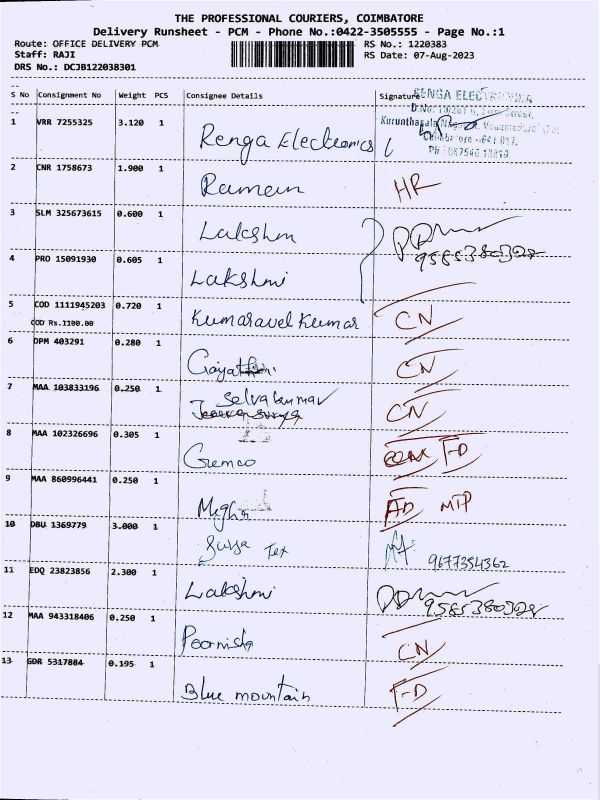 THE PROFESSIONAL COURIERS, COIMBATORE
Delivery Runsheet - PCM - Phone No.:0422-3505555 - Page No.:1
Route: OFFICE DELIVERY PCM RS No.: 1220383
Staff: RAJI RS Date: 07-Aug-2023
DRS No.: DCJB122038301
S No Consignment No Weight PCS Consignee Details Signature
RENGA ELECTRONICS
1 VRR 7255325 3.120 1 Renga Electronics
2 CNR 1758673 1.900 1 HR
3 SLM 325673615 0.600 1 Lakshmi
4 PRO 15091930 0.605 1 Lakshmi
5 COD 1111945203 0.720 1 Kumaravel Kumar CN
COD Rs.1100.00
6 DPM 403291 0.280 1 Gayathiri CN
7 MAA 103833196 0.250 1 Selvakumar CN
8 MAA 102326696 0.305 1 Gemco F-D
9 MAA 860996441 0.250 1 AD MTP
10 DBU 1369779 3.000 1 Surya Tex 9677354362
11 EDQ 23823856 2.300 1 Lakshmi
12 MAA 943318406 0.250 1 CN
13 GDR 5317884 0.195 1 Blue mountain F-D